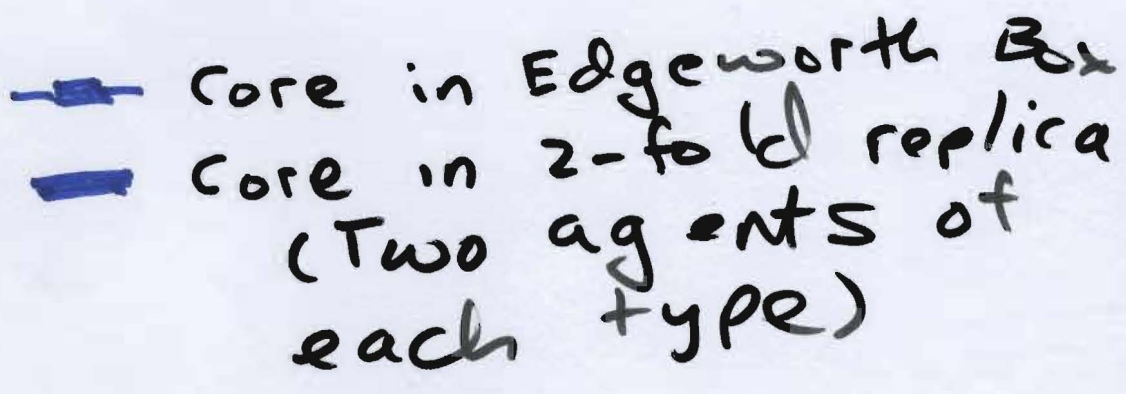 Core in Edgeworth Box
Core in 2-fold replica
(Two agents of
each type)